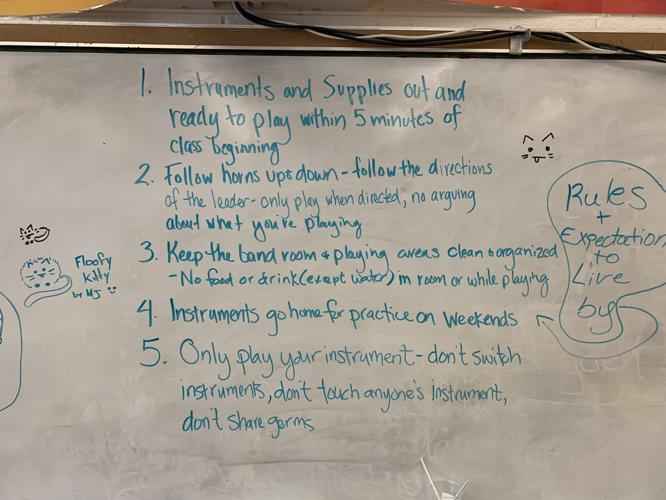 1. Instruments and Supplies out and
ready to play within 5 minutes of
class beginning
2. Follow horns up & down - follow the directions
of the leader - only play when directed, no arguing
about what you're playing
3. Keep the band room & playing areas clean & organized
- No food or drink (except water) in room or while playing
4. Instruments go home for practice on weekends
5. Only play your instrument - don't switch
instruments, don't touch anyone's instrument,
don't share germs
Rules
+
Expectation
to
Live
by
Floofy
Kitty
by MJ